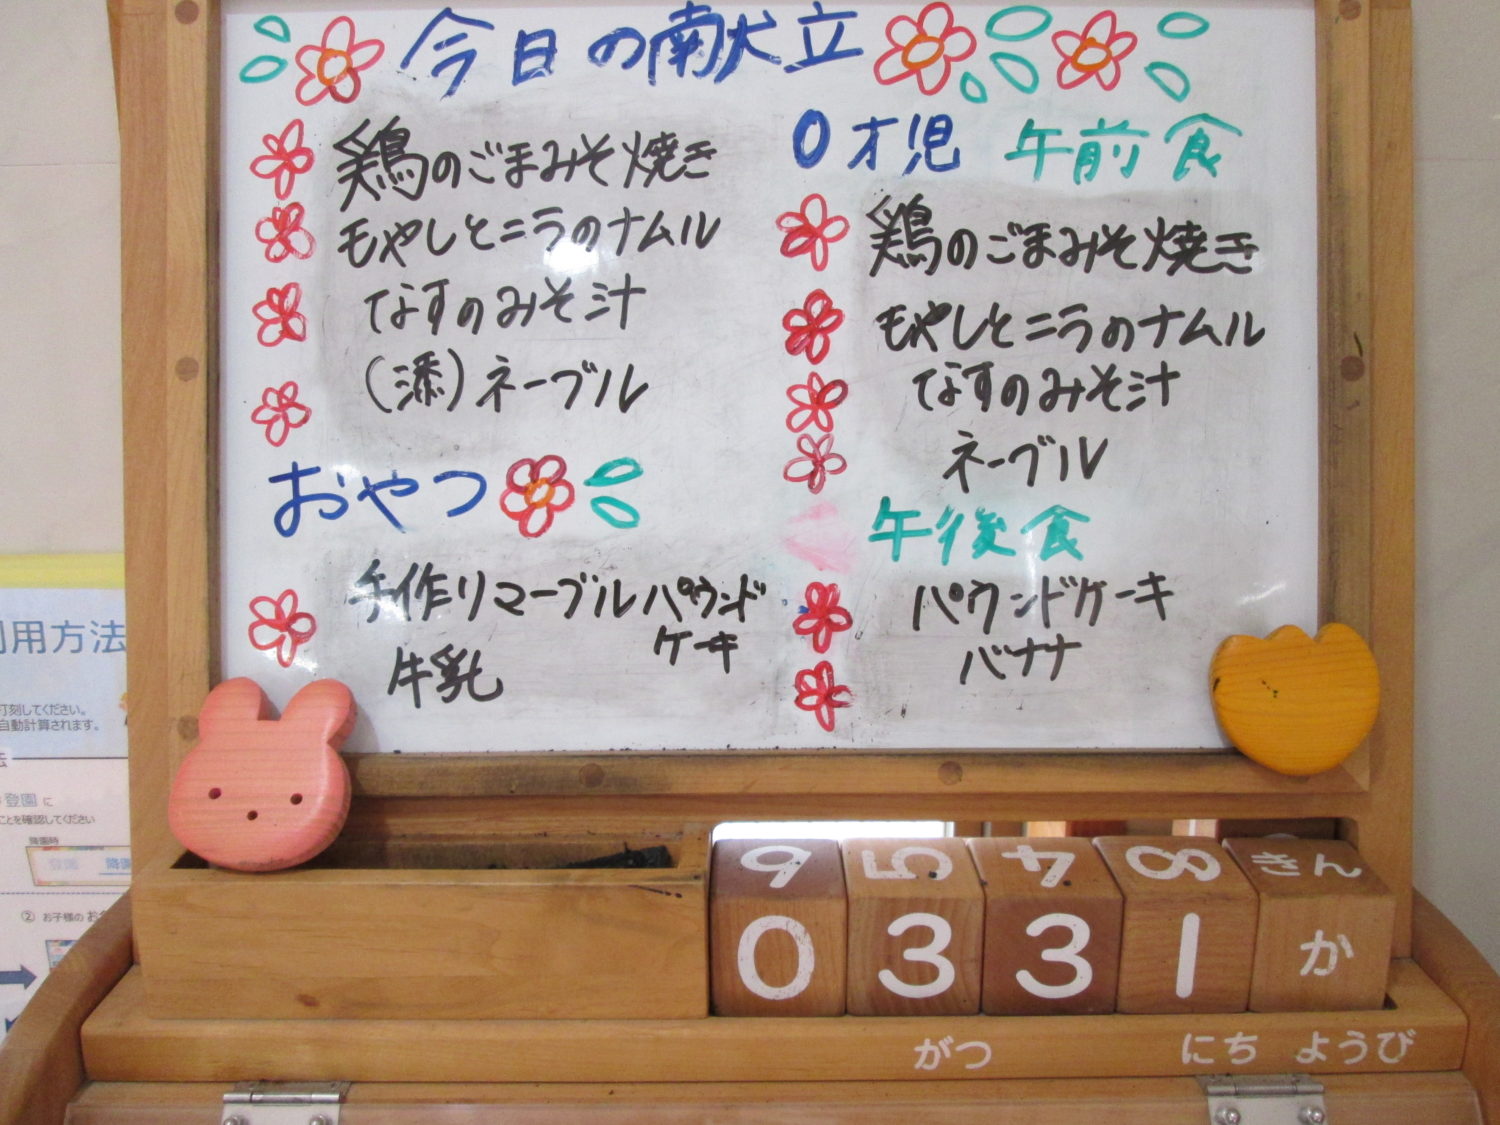 今日の献立
鶏のごまみそ焼き
もやしとニラのナムル
なすのみそ汁
(添)ネーブル
おやつ
手作りマーブルパウンド
ケーキ
牛乳
0才児 午前食
鶏のごまみそ焼き
もやしとニラのナムル
なすのみそ汁
ネーブル
午後食
パウンドケーキ
バナナ
利用方法
打刻してください。
自動計算されます。
登園に
ことを確認してください
降園時
登園 降園
② お子様のお
9 5 4 8 きん
0 3 3 1 か
がつ にち ようび